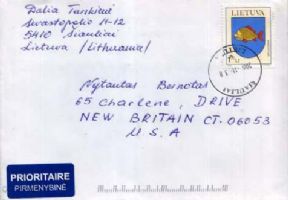 Dalia Tuskienė
Sevastopolio 11-12
5410 Šiauliai
Lietuva (Lithuania)
LIETUVA
ŠIAULIAI
Vytautas Bernotas
65 Charlene, DRIVE
NEW BRITAIN CT. 06053
U S A
PRIORITAIRE
PIRMENYBINĖ